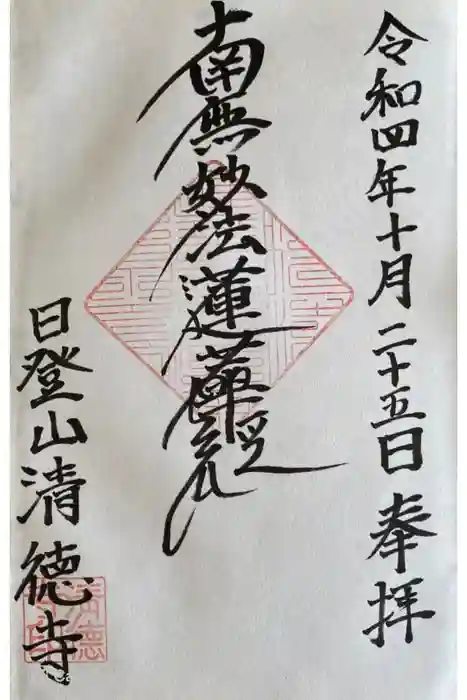 令和四年十月二十五日奉拝
南無妙法蓮華経
日登山清徳寺
清徳寺印